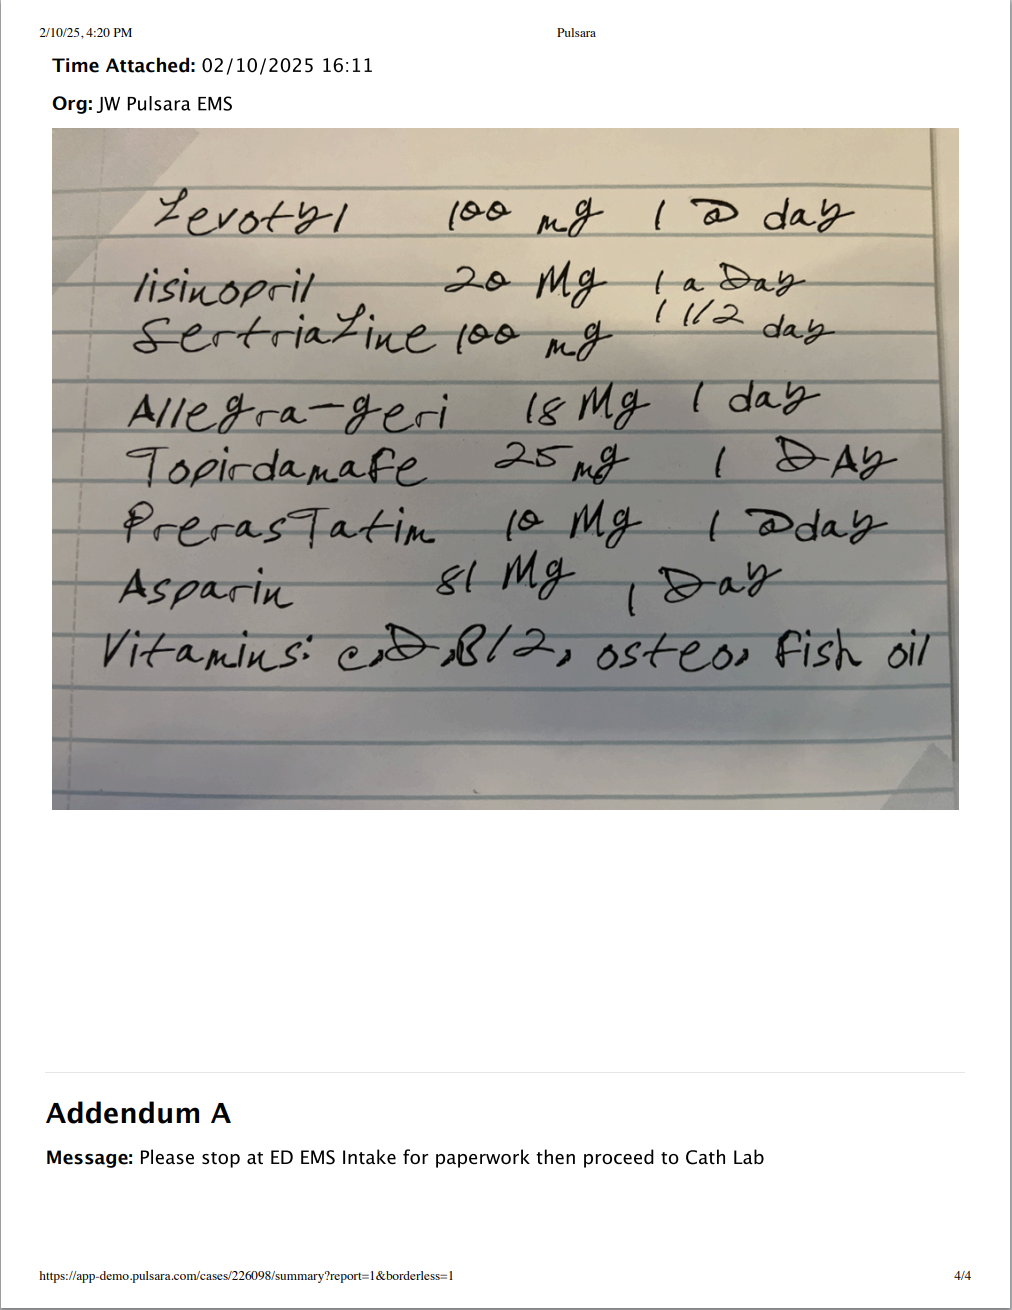 2/10/25, 4:20 PM Pulsara
Time Attached: 02/10/2025 16:11
Org: JW Pulsara EMS
Levotyl 100 mg 1 a day
lisinopril 20 Mg 1 a Day
SertriaLine 100 mg 1 1/2 day
Allegra-geri 18 Mg 1 day
Topirdamafe 25 mg 1 DAy
PrerasTatim 10 Mg 1 a day
Asparin 81 Mg 1 Day
Vitamins: c, D, B12, osteo, fish oil
Addendum A
Message: Please stop at ED EMS Intake for paperwork then proceed to Cath Lab
https://app-demo.pulsara.com/cases/226098/summary?report=1&borderless=1 4/4